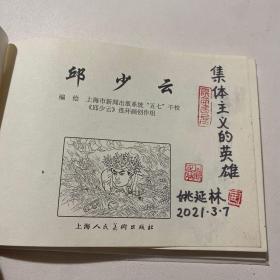 邱少云
编绘 上海市新闻出版系统“五七”干校
《邱少云》连环画创作组
上海人民美术出版社
集体主义的英雄
姚延林
2021·3·7